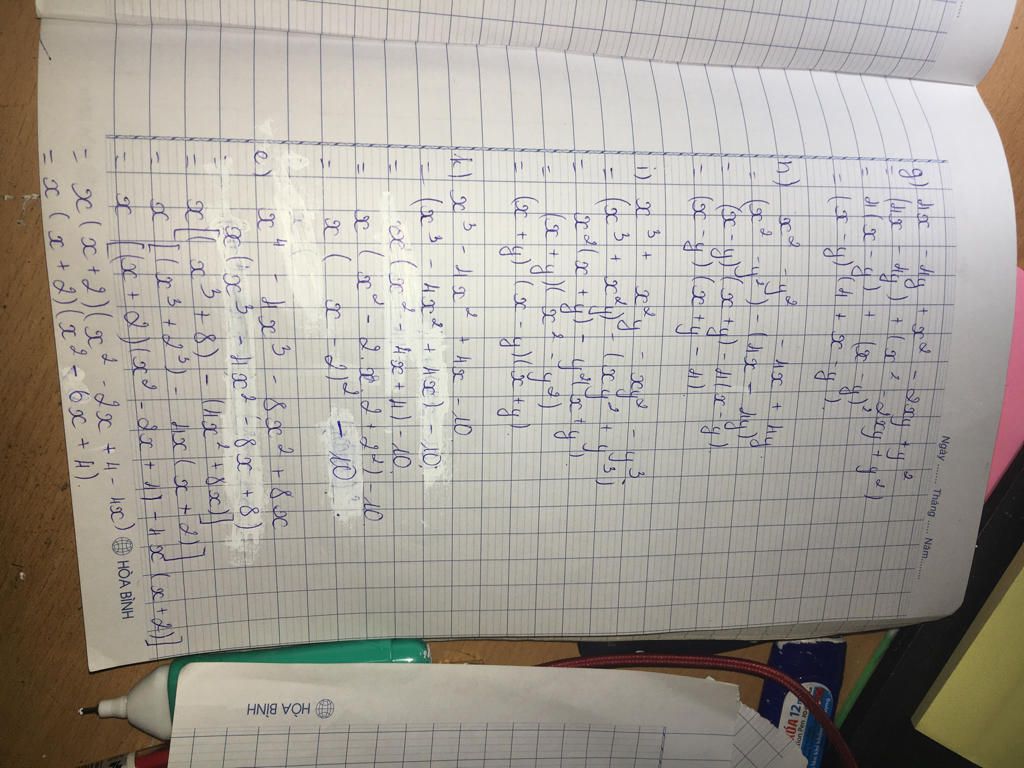 Ngày ........ Tháng ..... Năm..........
g) 4x - 4y + x² - 2xy + y²
= (4x - 4y) + (x² - 2xy + y²)
= 4(x - y) + (x - y)²
= (x - y)(4 + x - y)
h) x² - y² - 4x + 4y
= (x² - y²) - (4x - 4y)
= (x - y)(x + y) - 4(x - y)
= (x - y)(x + y - 4)
i) x³ + x²y - xy² - y³
= (x³ + x²y) - (xy² + y³)
= x²(x + y) - y²(x + y)
= (x + y)(x² - y²)
= (x + y)(x - y)(x + y)
k) x³ - 4x² + 4x - 10
= (x³ - 4x² + 4x) - 10
= x(x² - 4x + 4) - 10
= x(x² - 2.x.2 + 2²) - 10
= x(x - 2)² - 10
e) x⁴ - 4x³ - 8x² + 8x
= x(x³ - 4x² - 8x + 8)
= x[(x³ + 8) - (4x² + 8x)]
= x[(x³ + 2³) - 4x(x + 2)]
= x[(x + 2)(x² - 2x + 4) - 4x(x + 2)]
= x(x + 2)(x² - 2x + 4 - 4x)
= x(x + 2)(x² - 6x + 4).
HÒA BÌNH
HÒA BÌNH